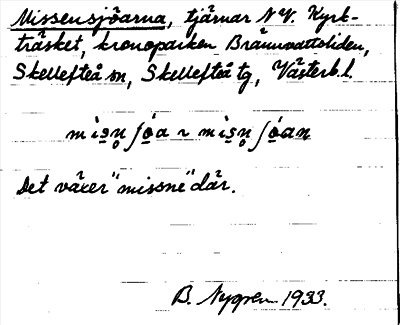 Missensjöarna, tjärnar N.V. Kyrk-
träsket, kronoparken Brännvattsliden,
Skellefteå sn, Skellefteå tg, Västerb. l.
Det växer "missne" där.
B. Nygren 1933.